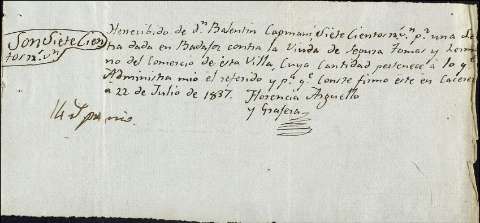 He recibido de d.n Balentin Capmani Siete Cientos r.s v.n p.r una Le
tra dada en Badajoz contra la Viuda de Segura Tomas y
no del Comercio de esta Villa, Cuya Cantidad pertenece a lo q.e
Administra mio el referido y p.a q.e Conste firmo este en Caceres
a 22 de Julio de 1837. Florencia Arguello
y Grafera
Son Siete Cien
tos r.s v.n